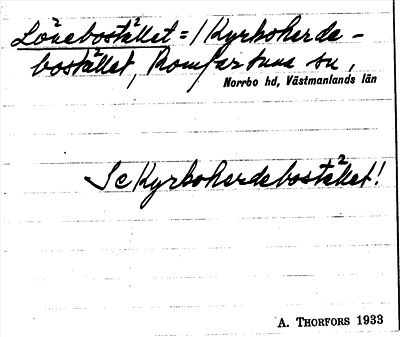 Lönebostället = / Kyrboherde-
bostället, Romfartuna sn,
Norrbo hd, Västmanlands län
Se Kyrboherdebostället!
A. THORFORS 1933